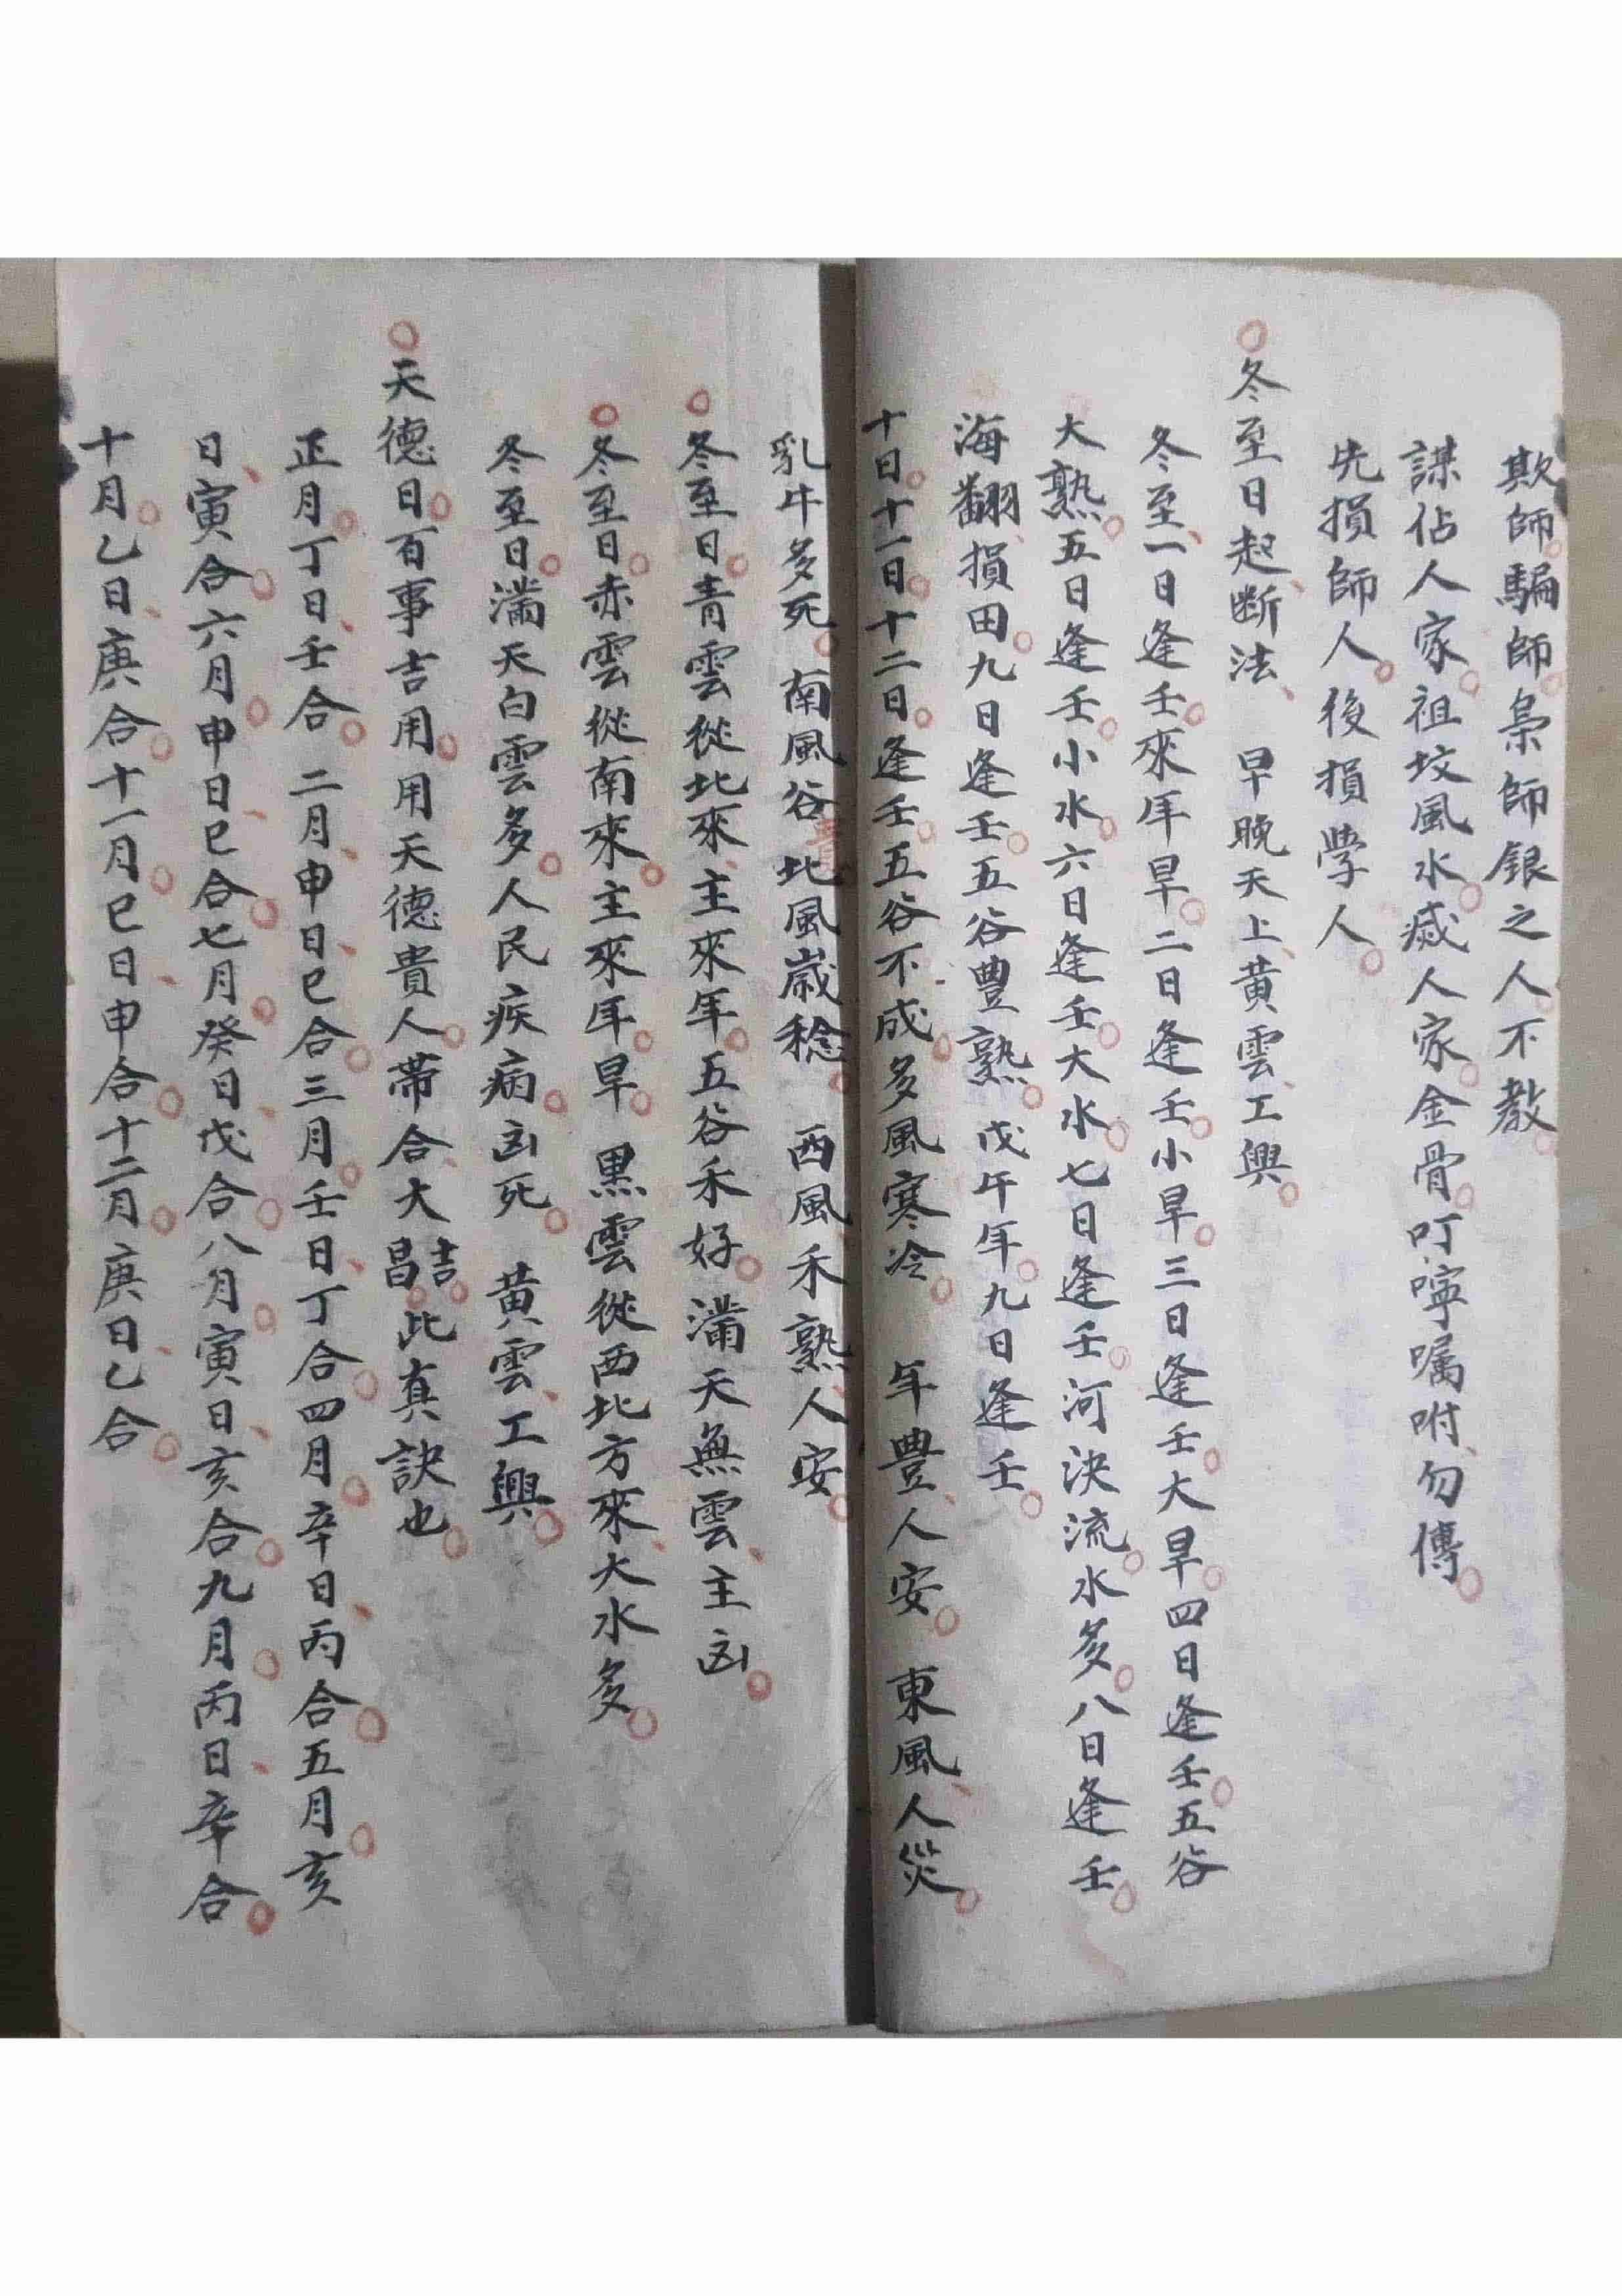 欺師騙師梟師銀之人不教
謀佔人家祖坟風水滅人家金骨叮嚀囑咐勿傳
先損師人後損學人
冬至日起断法 早晚天上黃雲工興
冬至一日逢壬來年旱二日逢壬小旱三日逢壬大旱四日逢壬五谷
大熟五日逢壬小水六日逢壬大水七日逢壬河決流水多八日逢壬
海翻損田九日逢壬五谷豐熟戊午年九日逢壬
十日十一日十二日逢壬五谷不成多風寒冷 年豊人安 東風人災
乳牛多死 南風谷貴 北風歲稔 西風禾熟人安
冬至日青雲從北來主來年五谷禾好滿天無雲主凶
冬至日赤雲從南來主來年旱 黑雲從西北方來大水多
冬至日滿天白雲多人民疾病凶死 黃雲工興
天德日百事吉用用天德貴人帶合大吉昌此真訣也
正月丁日壬合 二月申日巳合三月壬日丁合四月辛日丙合五月亥
日寅合六月申日巳合七月癸日戊合八月寅日亥合九月丙日辛合
十月乙日庚合十一月巳日申合十二月庚日乙合